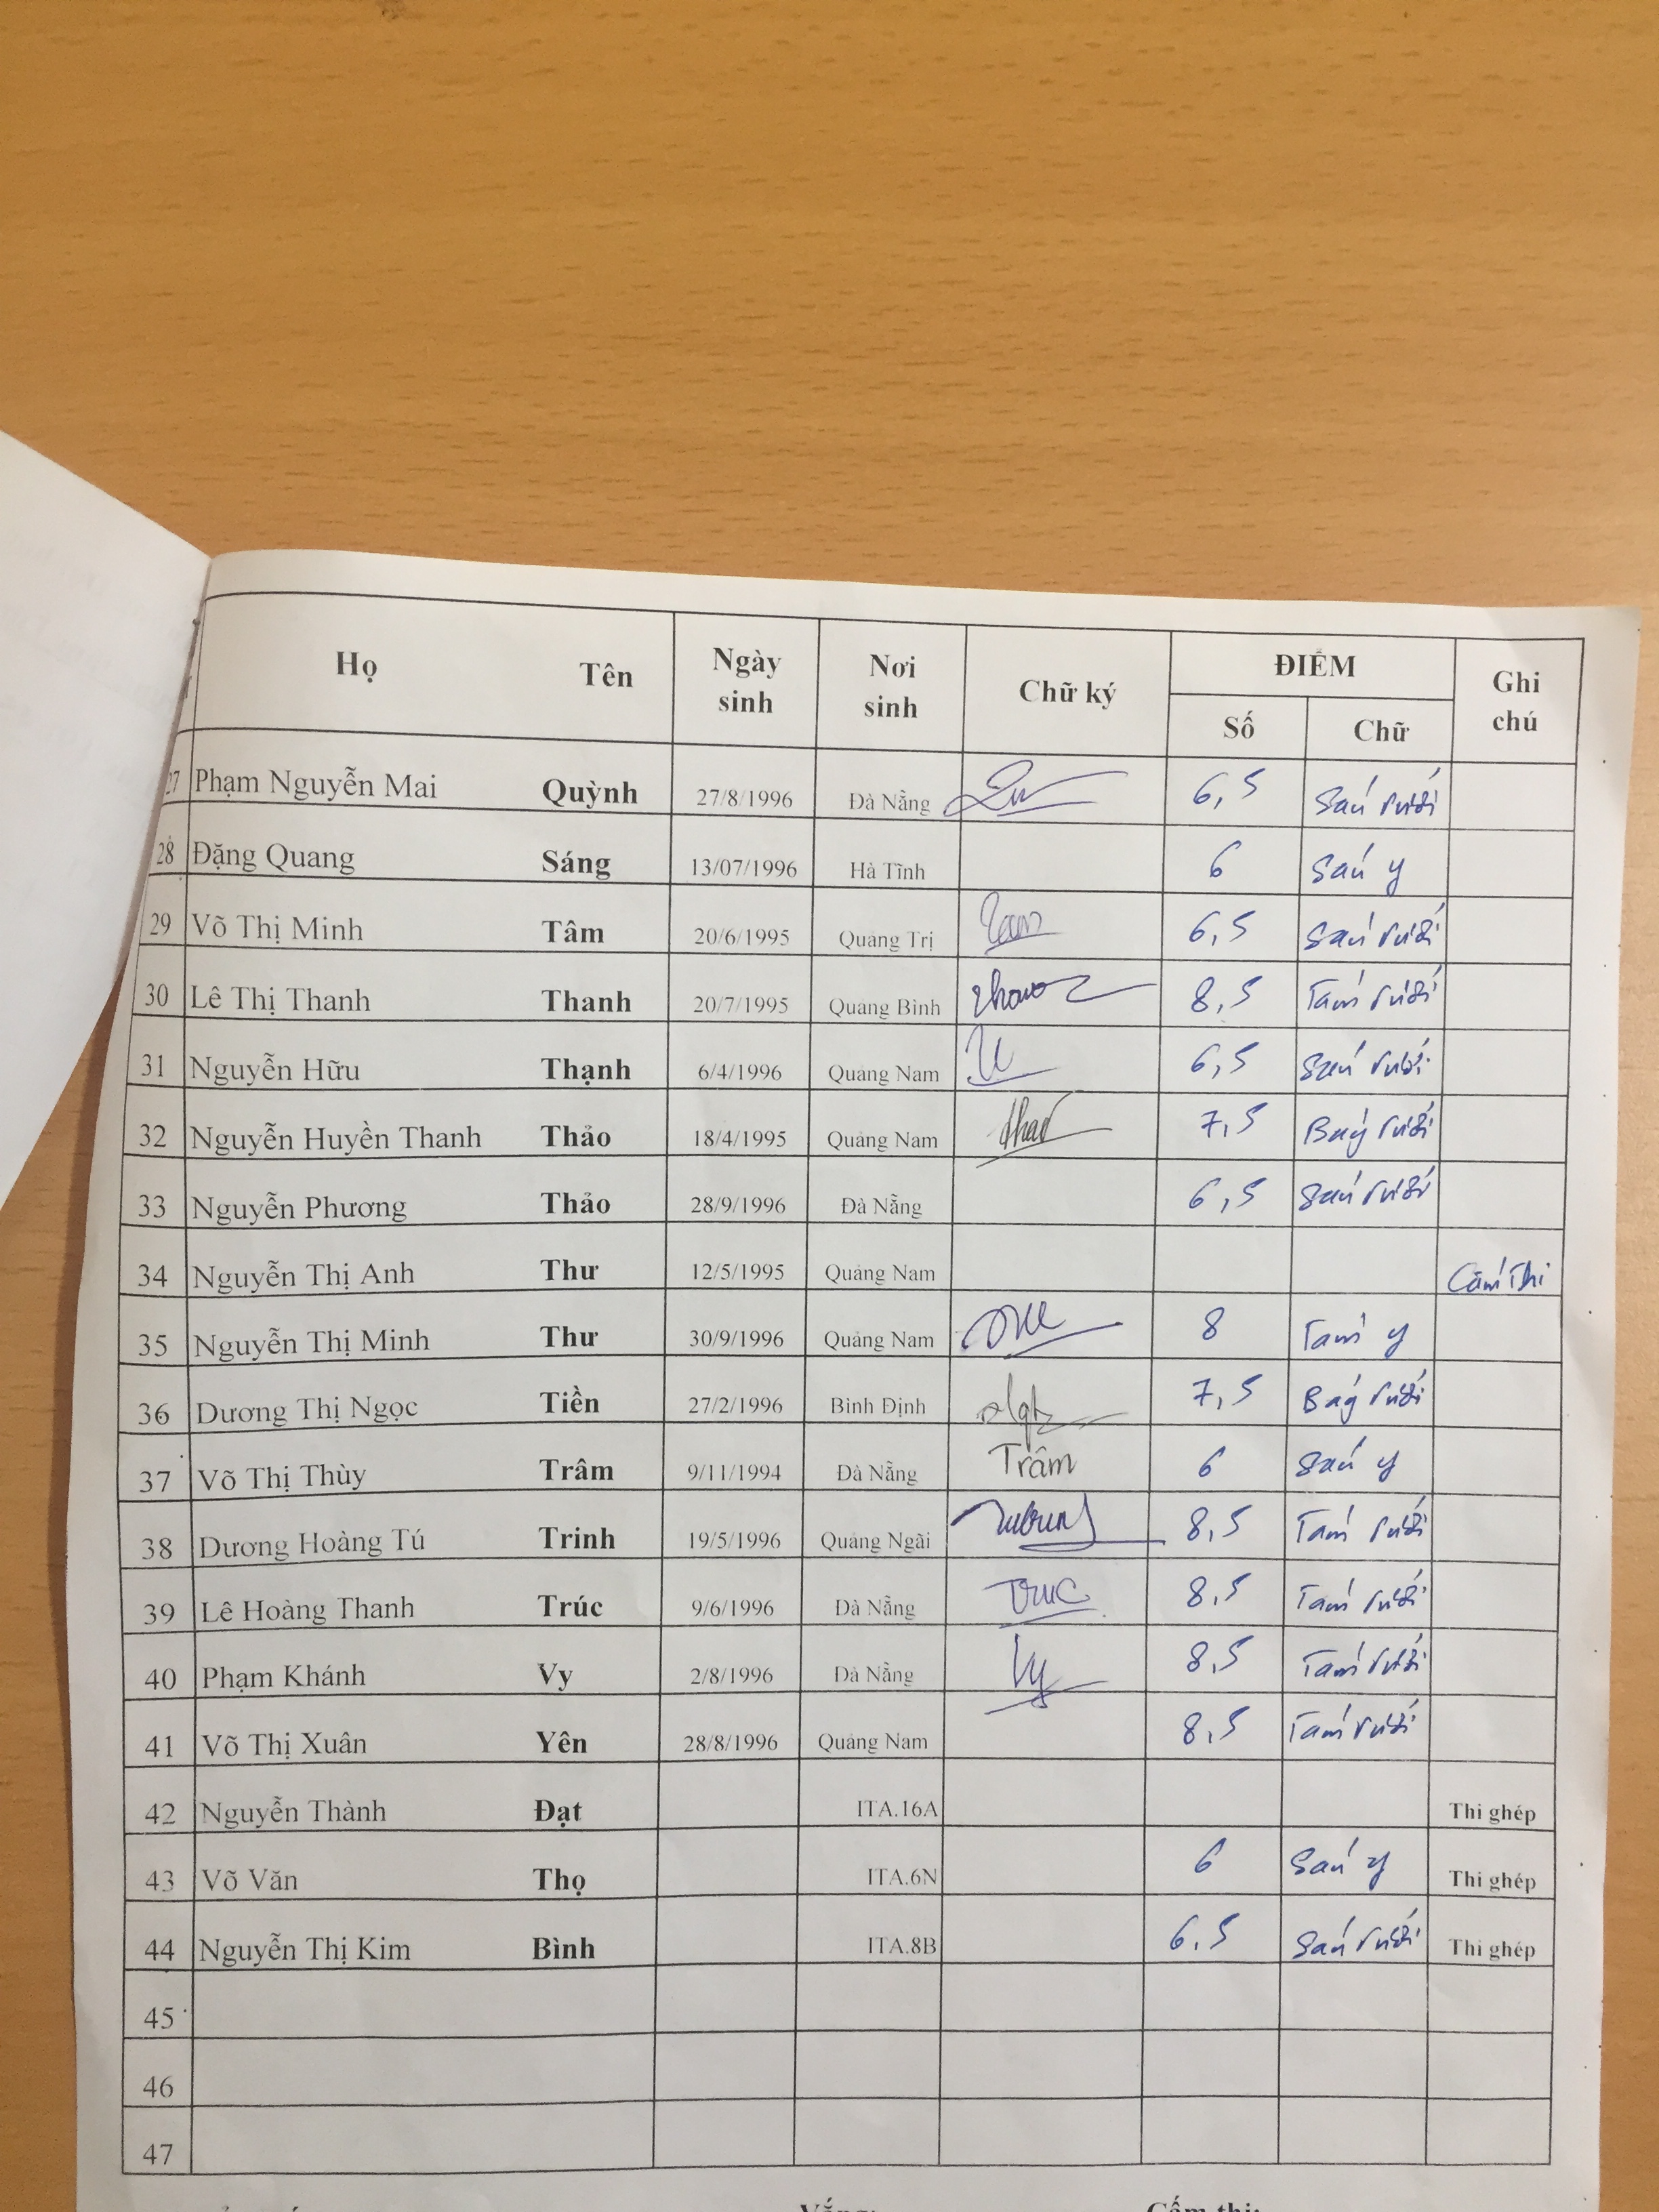 Họ Tên Ngày sinh Nơi sinh Chữ ký ĐIỂM Ghi chú
Số Chữ
27 Phạm Nguyễn Mai Quỳnh 27/8/1996 Đà Nẵng 6,5 Sáu rưỡi
28 Đặng Quang Sáng 13/07/1996 Hà Tĩnh 6 Sáu y
29 Võ Thị Minh Tâm 20/6/1995 Quảng Trị 6,5 Sáu rưỡi
30 Lê Thị Thanh Thanh 20/7/1995 Quảng Bình 8,5 Tám rưỡi
31 Nguyễn Hữu Thạnh 6/4/1996 Quảng Nam 6,5 Sáu rưỡi
32 Nguyễn Huyền Thanh Thảo 18/4/1995 Quảng Nam thao 7,5 Bảy rưỡi
33 Nguyễn Phương Thảo 28/9/1996 Đà Nẵng 6,5 Sáu rưỡi
34 Nguyễn Thị Anh Thư 12/5/1995 Quảng Nam Cấm Thi
35 Nguyễn Thị Minh Thư 30/9/1996 Quảng Nam 8 Tám y
36 Dương Thị Ngọc Tiền 27/2/1996 Bình Định 7,5 Bảy rưỡi
37 Võ Thị Thùy Trâm 9/11/1994 Đà Nẵng Trâm 6 Sáu y
38 Dương Hoàng Tú Trinh 19/5/1996 Quảng Ngãi 8,5 Tám rưỡi
39 Lê Hoàng Thanh Trúc 9/6/1996 Đà Nẵng Truc 8,5 Tám rưỡi
40 Phạm Khánh Vy 2/8/1996 Đà Nẵng Vy 8,5 Tám rưỡi
41 Võ Thị Xuân Yên 28/8/1996 Quảng Nam 8,5 Tám rưỡi
42 Nguyễn Thành Đạt ITA.16A Thi ghép
43 Võ Văn Thọ ITA.6N 6 Sáu y Thi ghép
44 Nguyễn Thị Kim Bình ITA.8B 6,5 Sáu rưỡi Thi ghép
45
46
47
Vắng: Cấm thi: